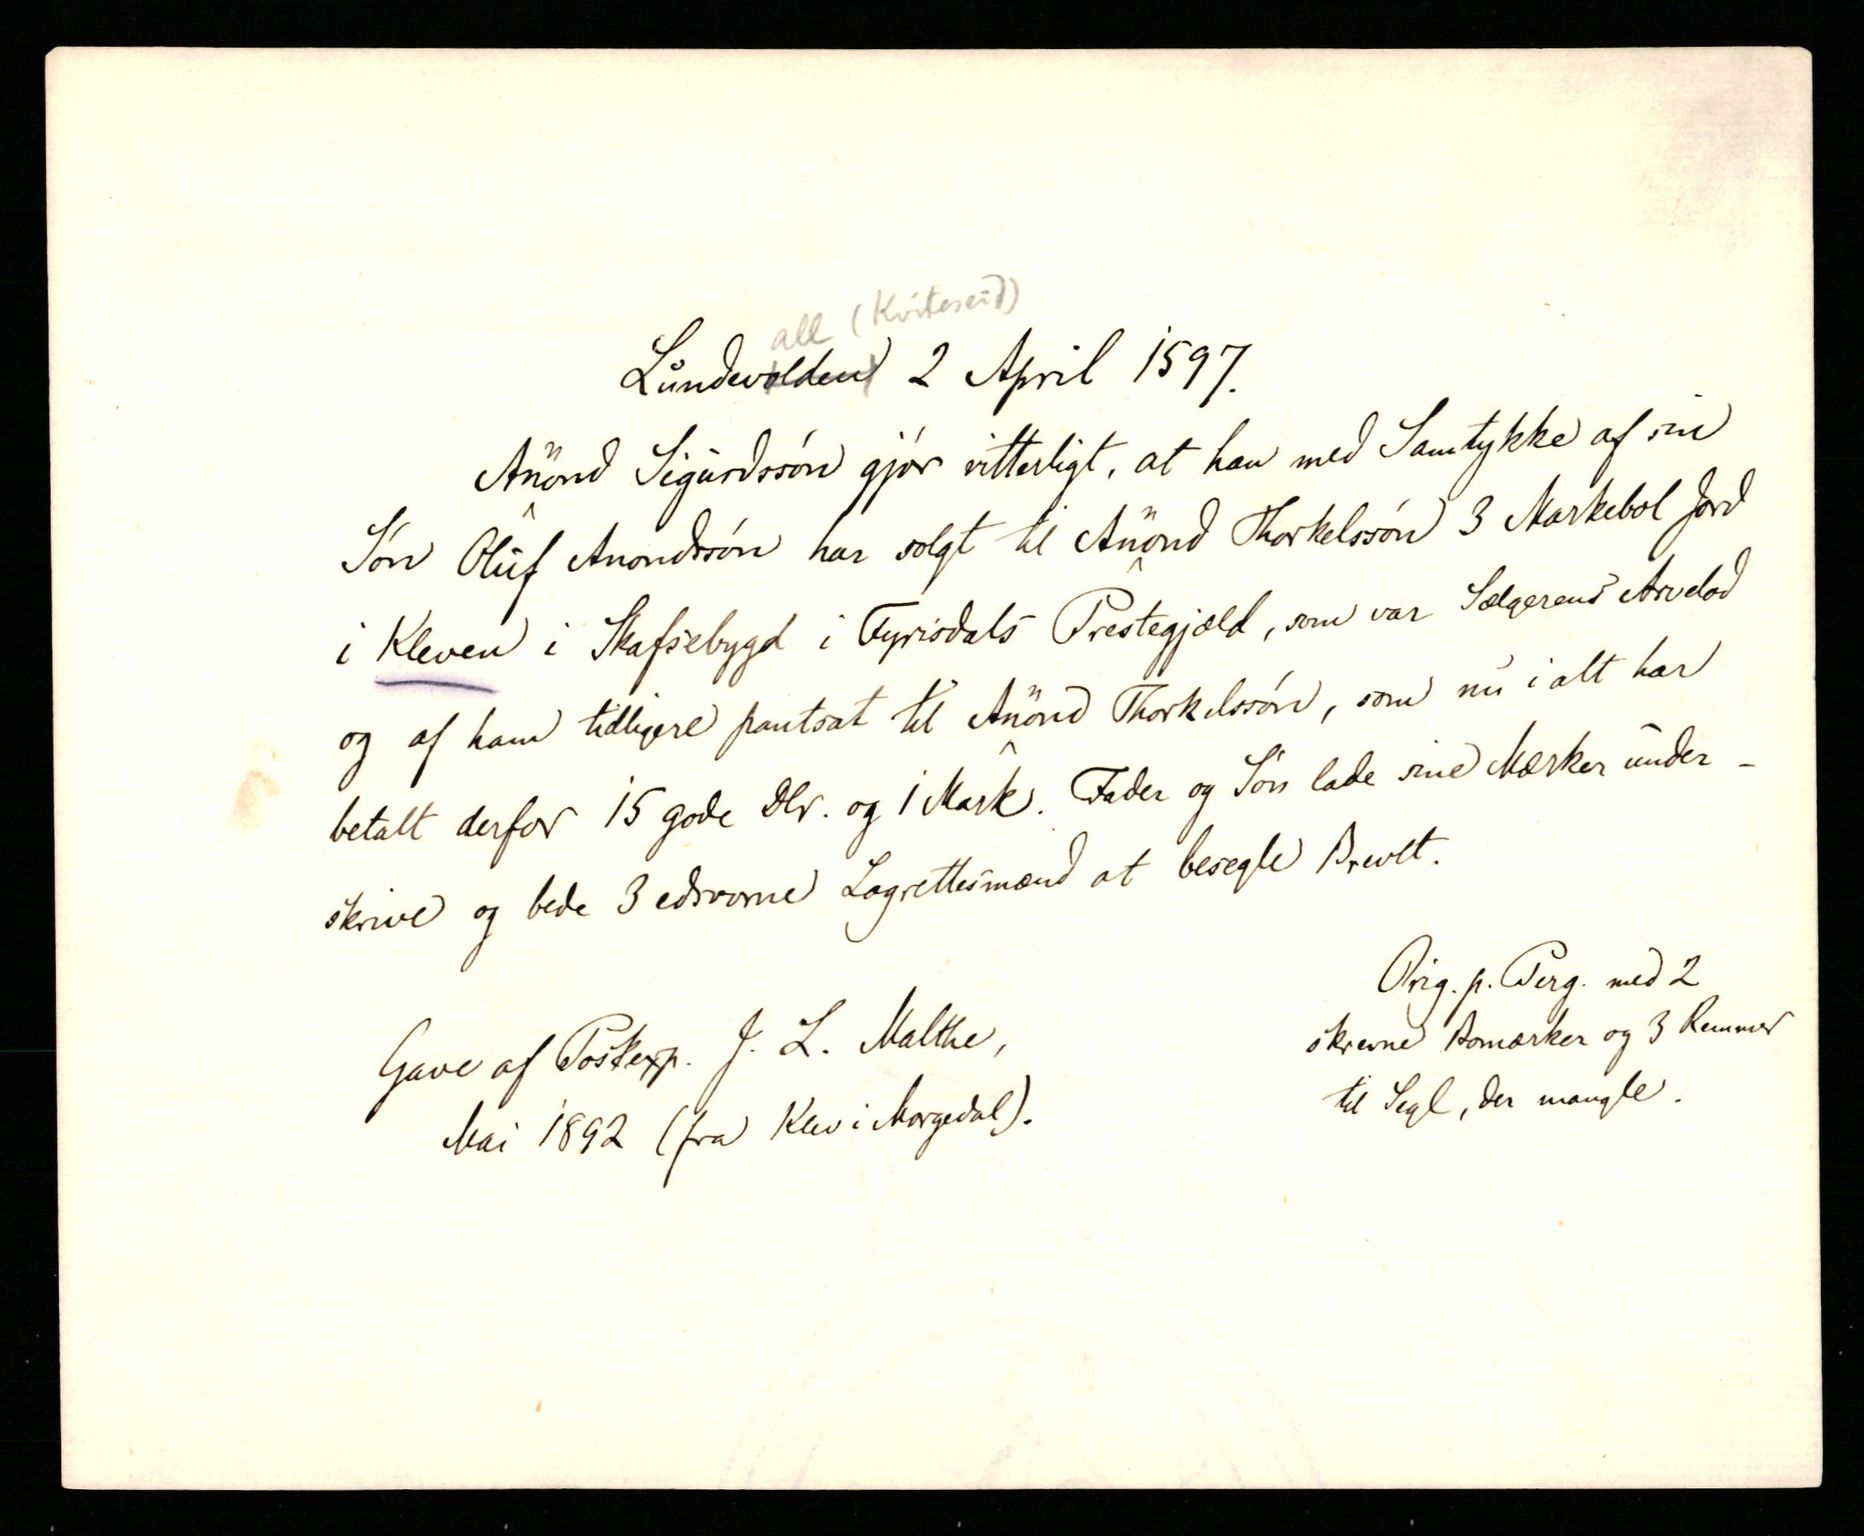 all (Kviteseid)
Lundevolden 2 April 1597.
Anönd Sigurdssøn gjør vitterligt, at han med Samtykke af sin
Søn Oluf Anondssøn har solgt til Anönd Thorkelssøn 3 Markebol Jord
i Kleven i Skafsebygd i Fyrisdals Prestegjæld, som var Sælgerens Arvelod
og af ham tidligere pantsat til Anönd Thorkelssøn, som nu i alt har
betalt derfor 15 gode Dlr. og 1 Mark. Fader og Søn lade sine Mærker under-
skrive og bede 3 edsvorne Lagrettesmænd at besegle Brevet.
Orig. p. Perg. med 2
skrevne Bomærker og 3 Remmer
til Segl, der mangle.
Gave af Postexp. J. L. Malthe,
Mai 1892 (fra Klev i Morgedal).